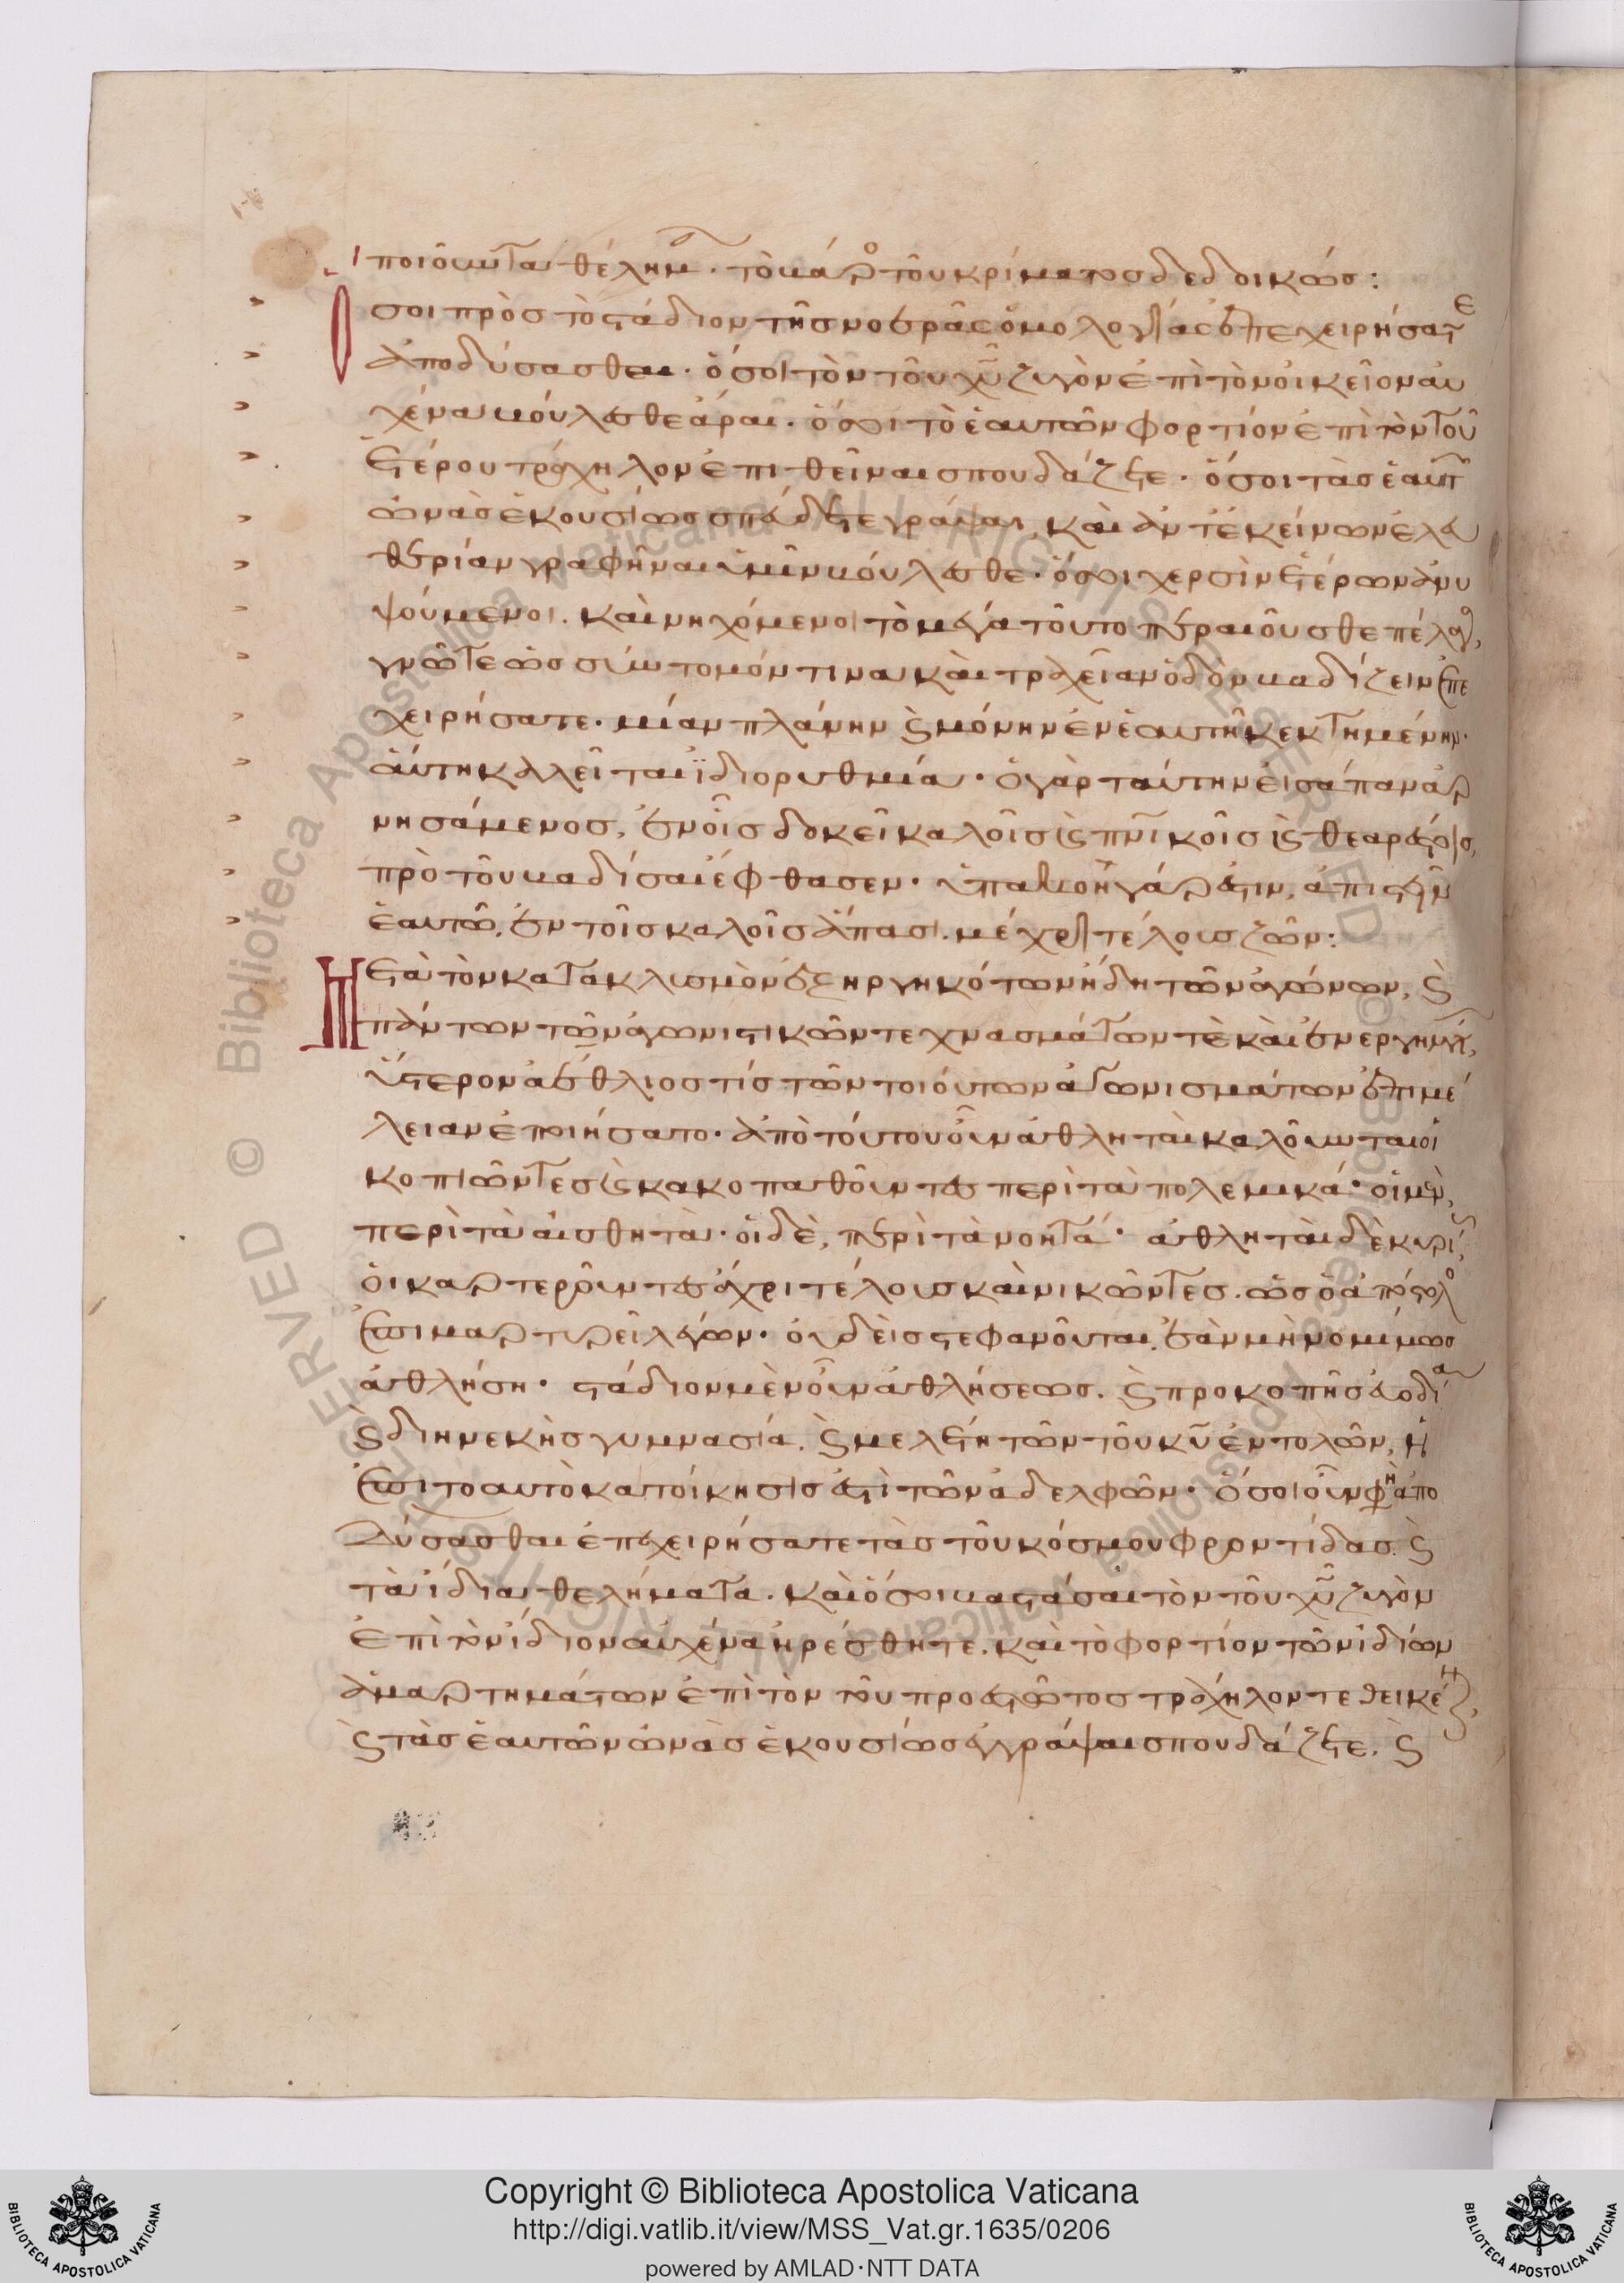 ποιοῦντα θέλημα. τὸ βάρος τοῦ κρίματος δεδοικώς:
Ὅσοι πρὸς τὸ στάδιον τῆς νοερᾶς ὁμολογίας ἐπεχειρήσατε
ἀποδύσασθαι. ὅσοι τὸν τοῦ χυ ζυγὸν ἐπὶ τὸν οἰκεῖον αὐ
χένα βούλεσθε ἆραι. ὅσοι τὸ ἑαυτῶν φορτίον ἐπὶ τὸν τοῦ
ἑτέρου τράχηλον ἐπιθεῖναι σπουδάζετε. ὅσοι τὰς ἑαυτῶν
ὠνὰς ἑκουσίως σπεύδετε γράψαι, καὶ ἀντ' ἐκείνων ἐλευ
θερίαν γραφῆναι ὑμῖν βούλεσθε. ὅσοι χερσὶν ἑτέρων ἀνυ
ψούμενοι. καὶ νηχόμενοι τὸ μέγα τοῦτο περαιοῦσθε πέλαγος,
γνῶτε ὡς σύντομόν τινα καὶ τραχεῖαν ὁδὸν βαδίζειν ἐπε
χειρήσατε. μίαν πλάνην καὶ μόνην ἐν ἑαυτῆ κεκτημένην.
αὕτη καλεῖται ἰδιορυθμία. ὁ γὰρ ταύτην εἰσάπαν ἀρ
νησάμενος, ἐν οἷς δοκεῖ καλοῖς καὶ πνικοῖς καὶ θεαρέστοις,
πρὸ τοῦ βαδίσαι ἔφθασεν. ὑπακοὴ γάρ ἐστιν, ἀπιστεῖν
ἑαυτῶ, ἐν τοῖς καλοῖς ἅπασι. μέχρι τέλους ζωῆς:
Μετὰ τὸν κατακλυσμὸν ἐξηργηκότων ἤδη τῶν ἀγώνων, καὶ
πάντων τῶν ἀγωνιστικῶν τεχνασμάτων τὲ καὶ ἐνεργημάτων,
ὕστερον ἀέθλιός τίς τῶν τοιούτων ἀγωνισμάτων ἐπιμέ
λειαν ἐποιήσατο. ἀπὸ τούτου οὖν ἀθληταὶ καλοῦνται οἱ
κοπιῶντες καὶ κακοπαθοῦντες περὶ τὰ πολεμικά. οἱ μὲν,
περὶ τὰ αἰσθητὰ. οἱ δὲ, περὶ τὰ νοητά. ἀθληταὶ δὲ κυρίως,
οἱ καρτεροῦντες ἄχρι τέλους καὶ νικῶντες. ὡς ὁ ἀπόστολος
ἐπιμαρτυρεῖ λέγων. οὐδεὶς στεφανοῦται, ἐὰν μὴ νομίμως
ἀθλήση. στάδιον μὲν οὖν ἀθλήσεως. καὶ προκοπῆς εὐοδία
καὶ διηνεκὴς γυμνασία. καὶ μελέτη τῶν τοῦ κυ ἐντολῶν, ἡ
ἐπιτοαυτὸ κατοίκησίς ἐστι τῶν ἀδελφῶν. ὅσοι οὖν φημὴ ἀπο
δύσασθαι ἐπεχειρήσατε τὰς τοῦ κόσμου φροντίδας. καὶ
τὰ ἴδια θελήματα. καὶ ὅσοι βαστάσαι τὸν τοῦ χυ ζυγὸν
ἐπὶ τὸν ἴδιον αὐχένα ἠρέσθητε. καὶ τὸ φορτίον τῶν ἰδίων
ἁμαρτημάτων ἐπὶ τὸν τοῦ προεστῶτος τράχηλον τεθείκατε,
καὶ τὰς ἑαυτῶν ὠνὰς ἑκουσίως ἐγγράψαι σπουδάζετε. καὶ
Copyright © Biblioteca Apostolica Vaticana
http://digi.vatlib.it/view/MSS_Vat.gr.1635/0206
powered by AMLAD·NTT DATA